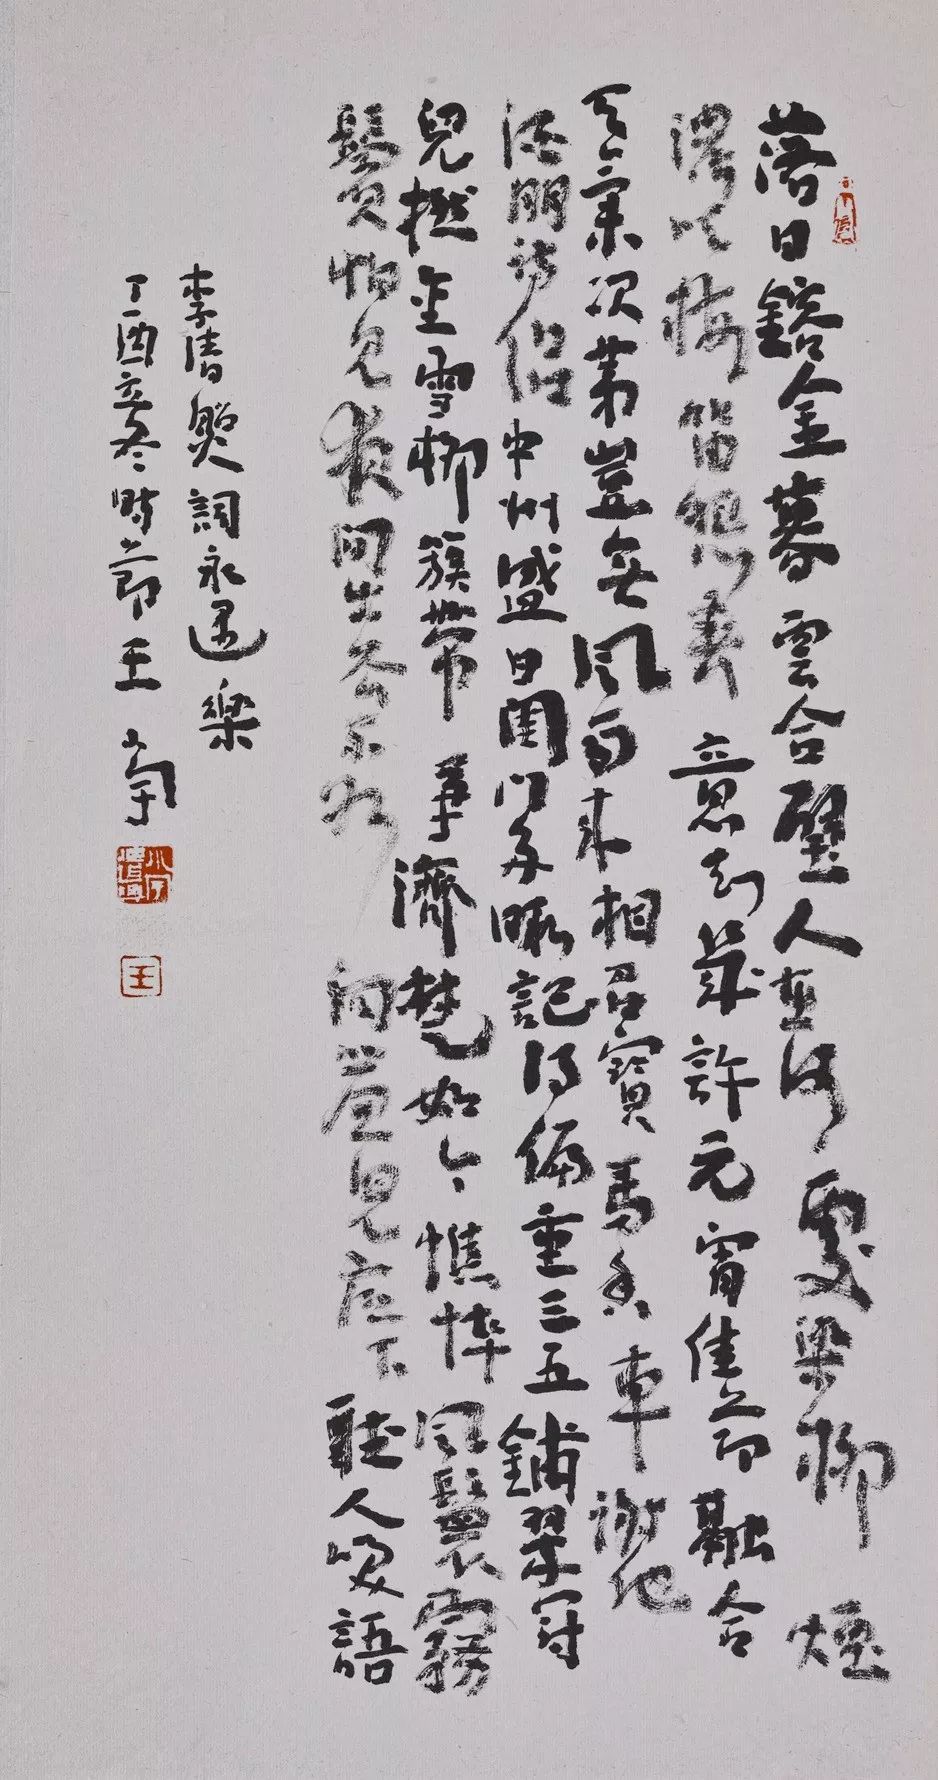 落日鎔金暮雲合璧人在何處染柳煙
濃吹梅笛怨春意知幾許元宵佳節融合
天氣次第豈無風雨來相召寶馬香車謝他
酒朋詩侶中州盛日閨門多暇記得偏重三五鋪翠冠
兒撚金雪柳簇帶爭濟楚如今憔悴風鬟霧
鬢怕見夜間出去不如向簾兒底下聽人笑語
李清照詞永遇樂
丁酉立冬時節王
王